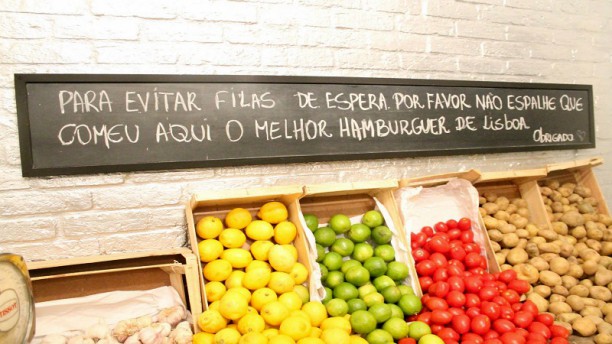 PARA EVITAR FILAS DE ESPERA. POR FAVOR NÃO ESPALHE QUE
COMEU AQUI O MELHOR HAMBURGUER DE LISBOA
OBRIGADO ♡